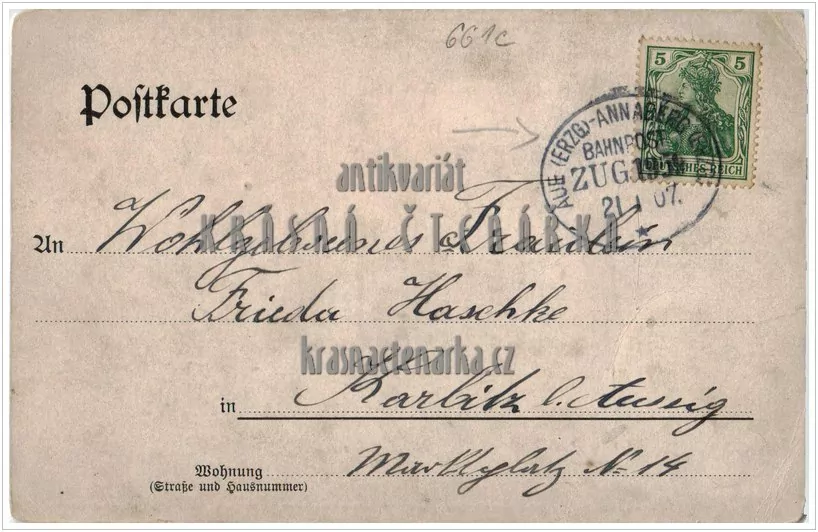 661c
Postkarte
5 5
DEUTSCHES REICH
AUE (ERZG)-ANNABERG
BAHNPOST
ZUG
21 1 07.
antikvariát
KRÁSNÁ ČTENÁŘKA
An Wohlgeborenes Fräulein
Frieda Haschke
krasnactenarka.cz
in Karbitz b. Aussig
Wohnung Marktplatz No 14
(Straße und Hausnummer)